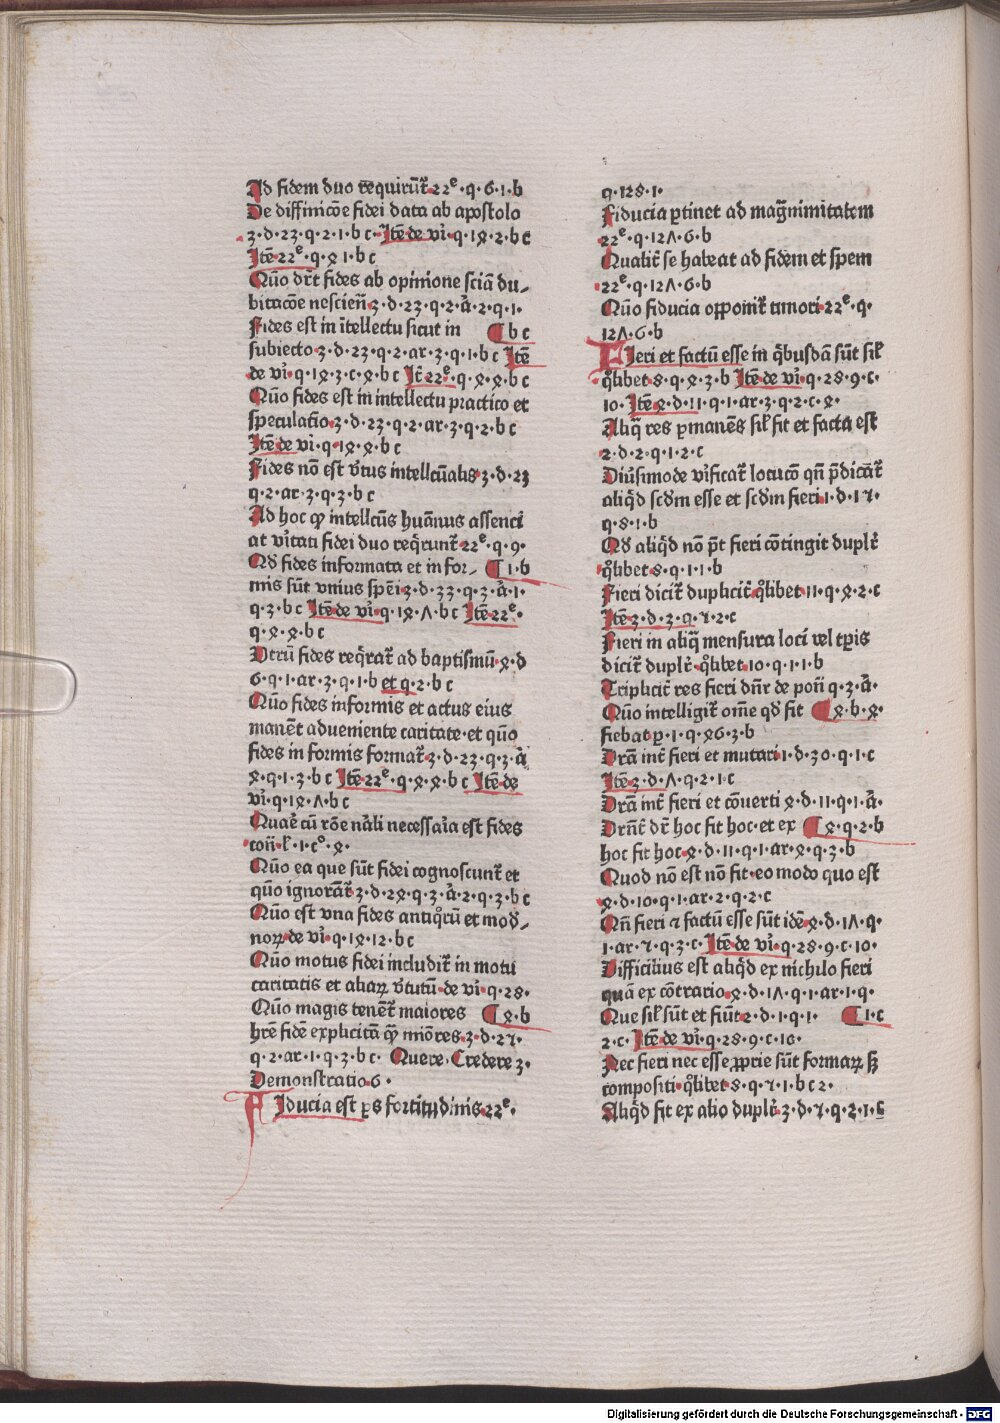 Ad fidem duo requirūt᷑ 22ᵉ·q·6·1·b
De diffinicōe fidei data ab apostolo
3·d·23·q·2·1·b c· Itē de vi̇·q·1ꝝ·2·b c
Itē 22ᵉ·q·ꝝ 1·b c
Quō dr̄t fides ab opinione sciā du⸗
bitacōe nescien̄ 3·d·23·q·2·ā·2·q·1·
Fides est in ītellectu sicut in ¶ b c
subiecto 3·d·23·q·2·ar·3·q·1·b c Itē
de vi̇·q·1ꝝ·3·c·ꝝ·b c It̄ 22ᵉ·q·ꝝ·ꝝ·b c
Quō fides est in intellectu practico et
speculatiō 3·d·23·q·2·ar·3·q·2·b c
Itē de vi̇·q·1ꝝ·ꝝ·b c
Fides nō est v̄tus intellcūalis 3·d·23
q·2·ar·3·q·3·b c
Ad hoc ꝙ intellcūs huānus assenci
at v̄itati fidei duo req̄runt᷑ 22ᵉ·q·9·
Qd̄ fides informata et in for⸗ ¶ 1·b
mis sūt vnius spēi 3·d·33·q·3·ā·1·
q·3·b c Itē de vi̇·q·1ꝝ·ʌ·b c Itē 22ᵉ·
q·ꝝ·ꝝ·b c
Vtrū fides req̄rat᷑ ad baptismū·ꝝ·d
6·q·1·ar·3·q·1·b et q·2·b c
Quō fides informis et actus eius
manēt adveniente caritate·et quō
fides in formis format᷑ 3·d·23·q·3·ā
ꝝ·q·1·3·b c Itē 22ᵉ·q·ꝝ·ꝝ·b c Itē de
vi̇·q·1ꝝ·ʌ·b c
Quaē cū rōe nāli necessaīa est fides
con̄·l̄·1·c°·ꝝ·
Quō ea que sūt fidei cognoscunt᷑ et
quō ignorāt᷑ 3·d·2ꝝ·q·3·ā·2·q·3·b c
Quō est vna fides antiq̄ꝛū et mod̄⸗
noꝝ de vi̇·q·1ꝝ·12·b c
Quō motus fidei includit᷑ in motu
caritatis et aliaꝝ v̄tutū·de vi̇·q·28·
Quō magis tenēt᷑ maiores ¶ ꝝ·b
hr̄e fidē explicitā qᷓꝫ miōres·3·d·27·
q·2·ar·1·q·3·b c· Quere·Credere 3·
Demonstratio 6·
Fiducia est ꝑs fortitudinis 22ᵉ·
q·128·1·
Fiducia ꝑtinet ad magn̄imitatem
22ᵉ·q·12ʌ·6·b
Qualit᷑ se habeat ad fidem et spem
22ᵉ·q·12ʌ·6·b
Quō fiducia opponit᷑ timori·22ᵉ·q·
12ʌ·6·b
Fieri et factū esse in q̄busdā sūt sil̄
q̊libet·8·q·ꝝ·3·b Itē de vi̇·q·28·9·c·
10· Itē ꝝ·d·11·q·1·ar·3·q·2·c·ꝝ·
Aliq̄ res ꝑmanēs sil̄ fit et facta est
2·d·2·q·1·2·c
Diūsimode v̄ificat᷑ locucō qn̄ p̄dicāt᷑
aliq̄d scd̄m esse et scd̄m fieri·1·d·17·
q·8·1·b
Qd̄ aliq̄d nō p̄t fieri cōtingit duplr̄
q̊libet·8·q·1·1·b
Fieri dicit᷑ duplicit᷑·q̊libet·11·q·ꝝ·2·c
Itē 3·d·3·q·7·2·c
Fieri in aliq̄ mensura loci vel tꝑis
dicit᷑ duplr̄·q̊libet·10·q·1·1·b
Triplicit᷑ res fieri dn̄r de pon̄ q·3·ā·
Quō intelligit᷑ om̄e qd̄ fit ¶ ꝝ·b·ꝝ·
fiebat ꝑ·1·q·ꝝ6·3·b
Dr̄am int᷑ fieri et mutari·1·d·30·q·1·c
Itē 3·d·ʌ·q·2·1·c
Dr̄am int᷑ fieri et cōuerti ꝝ·d·11·q·1·ā·
Drn̄t᷑ dr̄ hoc fit hoc·et ex ¶ ꝝ·q·2·b
hoc fit hoc·ꝝ·d·11·q·1·ar·ꝝ·q·3·b
Quod nō est nō fit·eo modo quo est
ꝝ·d·10·q·1·ar·2·q·2·c
Qn̄ fieri ⁊ factū esse sūt idē·ꝝ·d·1ʌ·q·
1·ar·7·q·3·c· Itē de vi̇·q·28·9·c·10·
Difficilius est aliq̄d ex nichilo fieri
quā ex cōtrario·ꝝ·d·1ʌ·q·1·ar·1·q·
Que sil̄ sūt et fiūt 2·d·1·q·1· ¶ 1·c
2·c· Itē de vi̇·q·28·9·c·10·
Nec fieri nec esse ꝓprie sūt formaꝝ sꝫ
compositi·q̊libet·8·q·7·1·b c 2·
Aliq̄d fit ex alio duplr̄·3·d·7·q·2·1·c
Digitalisierung gefördert durch die Deutsche Forschungsgemeinschaft · DFG